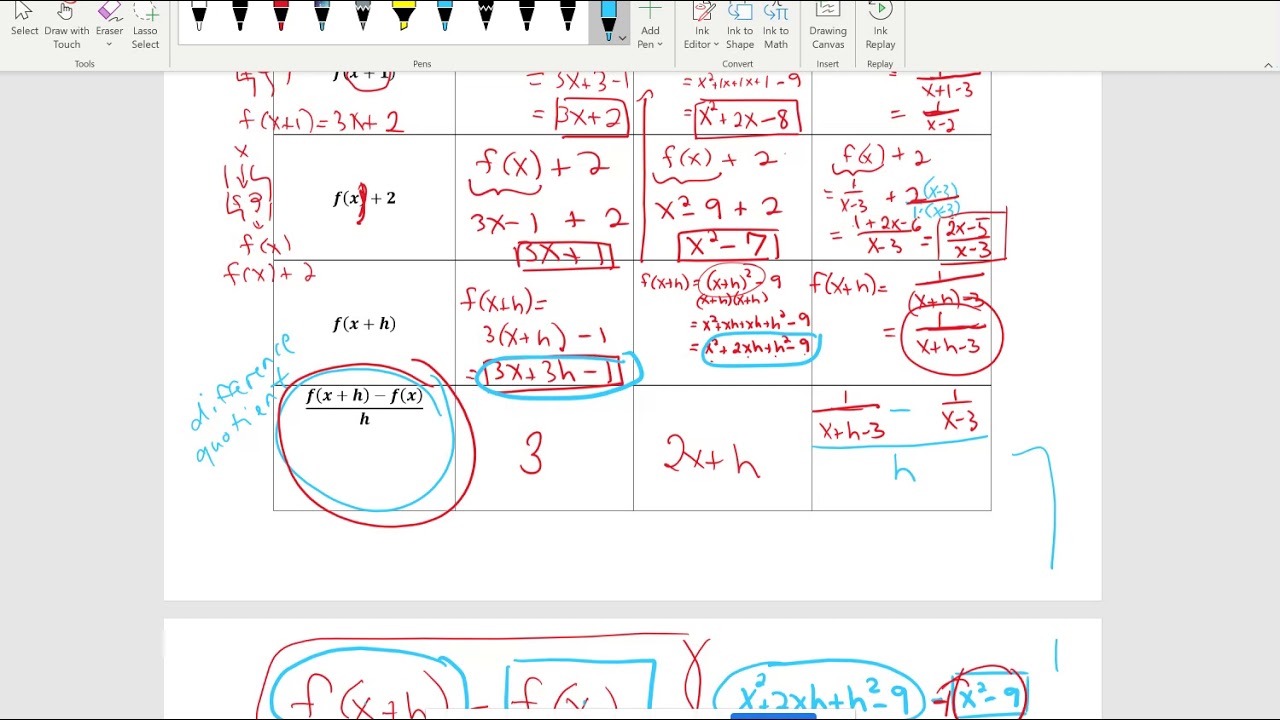 Select Draw with Touch Eraser Lasso Select Add Pen Ink Editor Ink to Shape Ink to Math Drawing Canvas Ink Replay
Tools Pens Convert Insert Replay
f(x + 1)
= 3x+3-1
= x²+1x+1x+1-9
= 1/(x+1-3)
f(x+1)=3x+2
= 3x+2
= x²+2x-8
= 1/(x-2)
x
f(x) + 2
f(x)
f(x)+2
f(x) + 2
3x-1 + 2
3x+1
f(x) + 2
x²-9+2
x²-7
f(x)+2
= 1/(x-3) + 2(x-3)/1·(x-3)
= (1+2x-6)/(x-3) = (2x-5)/(x-3)
f(x + h)
f(x+h)=
3(x+h) -1
= 3x+3h-1
f(x+h) = (x+h)² - 9
(x+h)(x+h)
= x²+xh+xh+h²-9
= x²+2xh+h²-9
f(x+h) = 1/((x+h)-3)
= 1/(x+h-3)
difference
quotient
(f(x + h) − f(x))/h
3
2x+h
(1/(x+h-3) - 1/(x-3))/h
f(x+h) - f(x)
x²+2xh+h²-9 - x²-9